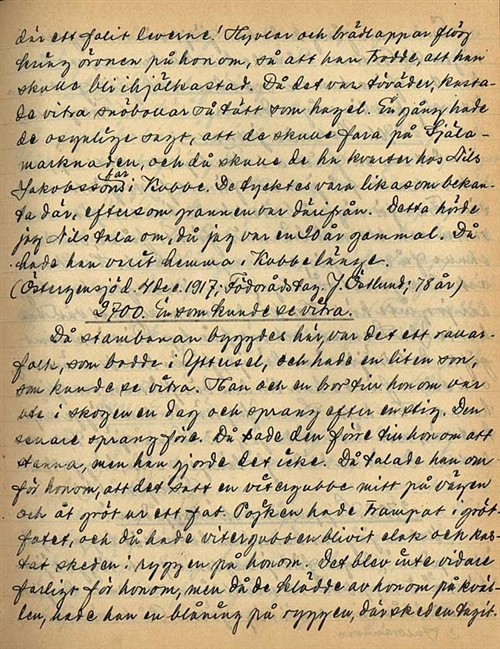 där ett falit leverne! Hyvlar och brädlappar flög
kring öronen på honom, så att han trodde, att han
skulle bli ihjälkastad. Då det var töväder, kasta-
de vitra snöbollar så tätt som hagel. En gång hade
de osynlige sagt, att de skulle fara på Själa-
marknaden, och då skulle de ha kvarter hos Nils
Jakobssons far i Kubbe. De tycktes vara likasom bekan-
ta där, eftersom grannen var därifrån. Detta hörde
jag Nils tala om, då jag var en 20 år gammal. Då
hade han varit hemma i Kubbe länge.
(Östergensjö d. 4 dec. 1917; Födorådstag. J. Östlund; 78 år)
2700. En som kunde se vitra.
Då stambanan byggdes här var det ett rallar-
folk, som bodde i Yttersel, och hade en liten son,
som kunde se vitra. Han och en bror till honom var
ute i skogen en dag och sprang efter en stig. Den
senare sprang före. Då bade den förre till honom att
stanna, men han gjorde det icke. Då talade han om
för honom, att det satt en vitergubbe mitt på vägen
och åt gröt ur ett fat. Pojken hade trampat i gröt-
fatet, och då hade vitergubben blivit elak och kas-
tat skeden i ryggen på honom. Det blev inte vidare
farligt för honom, men då de klädde av honom på kväl-
len, hade han en blåning på ryggen, där skeden tagit.